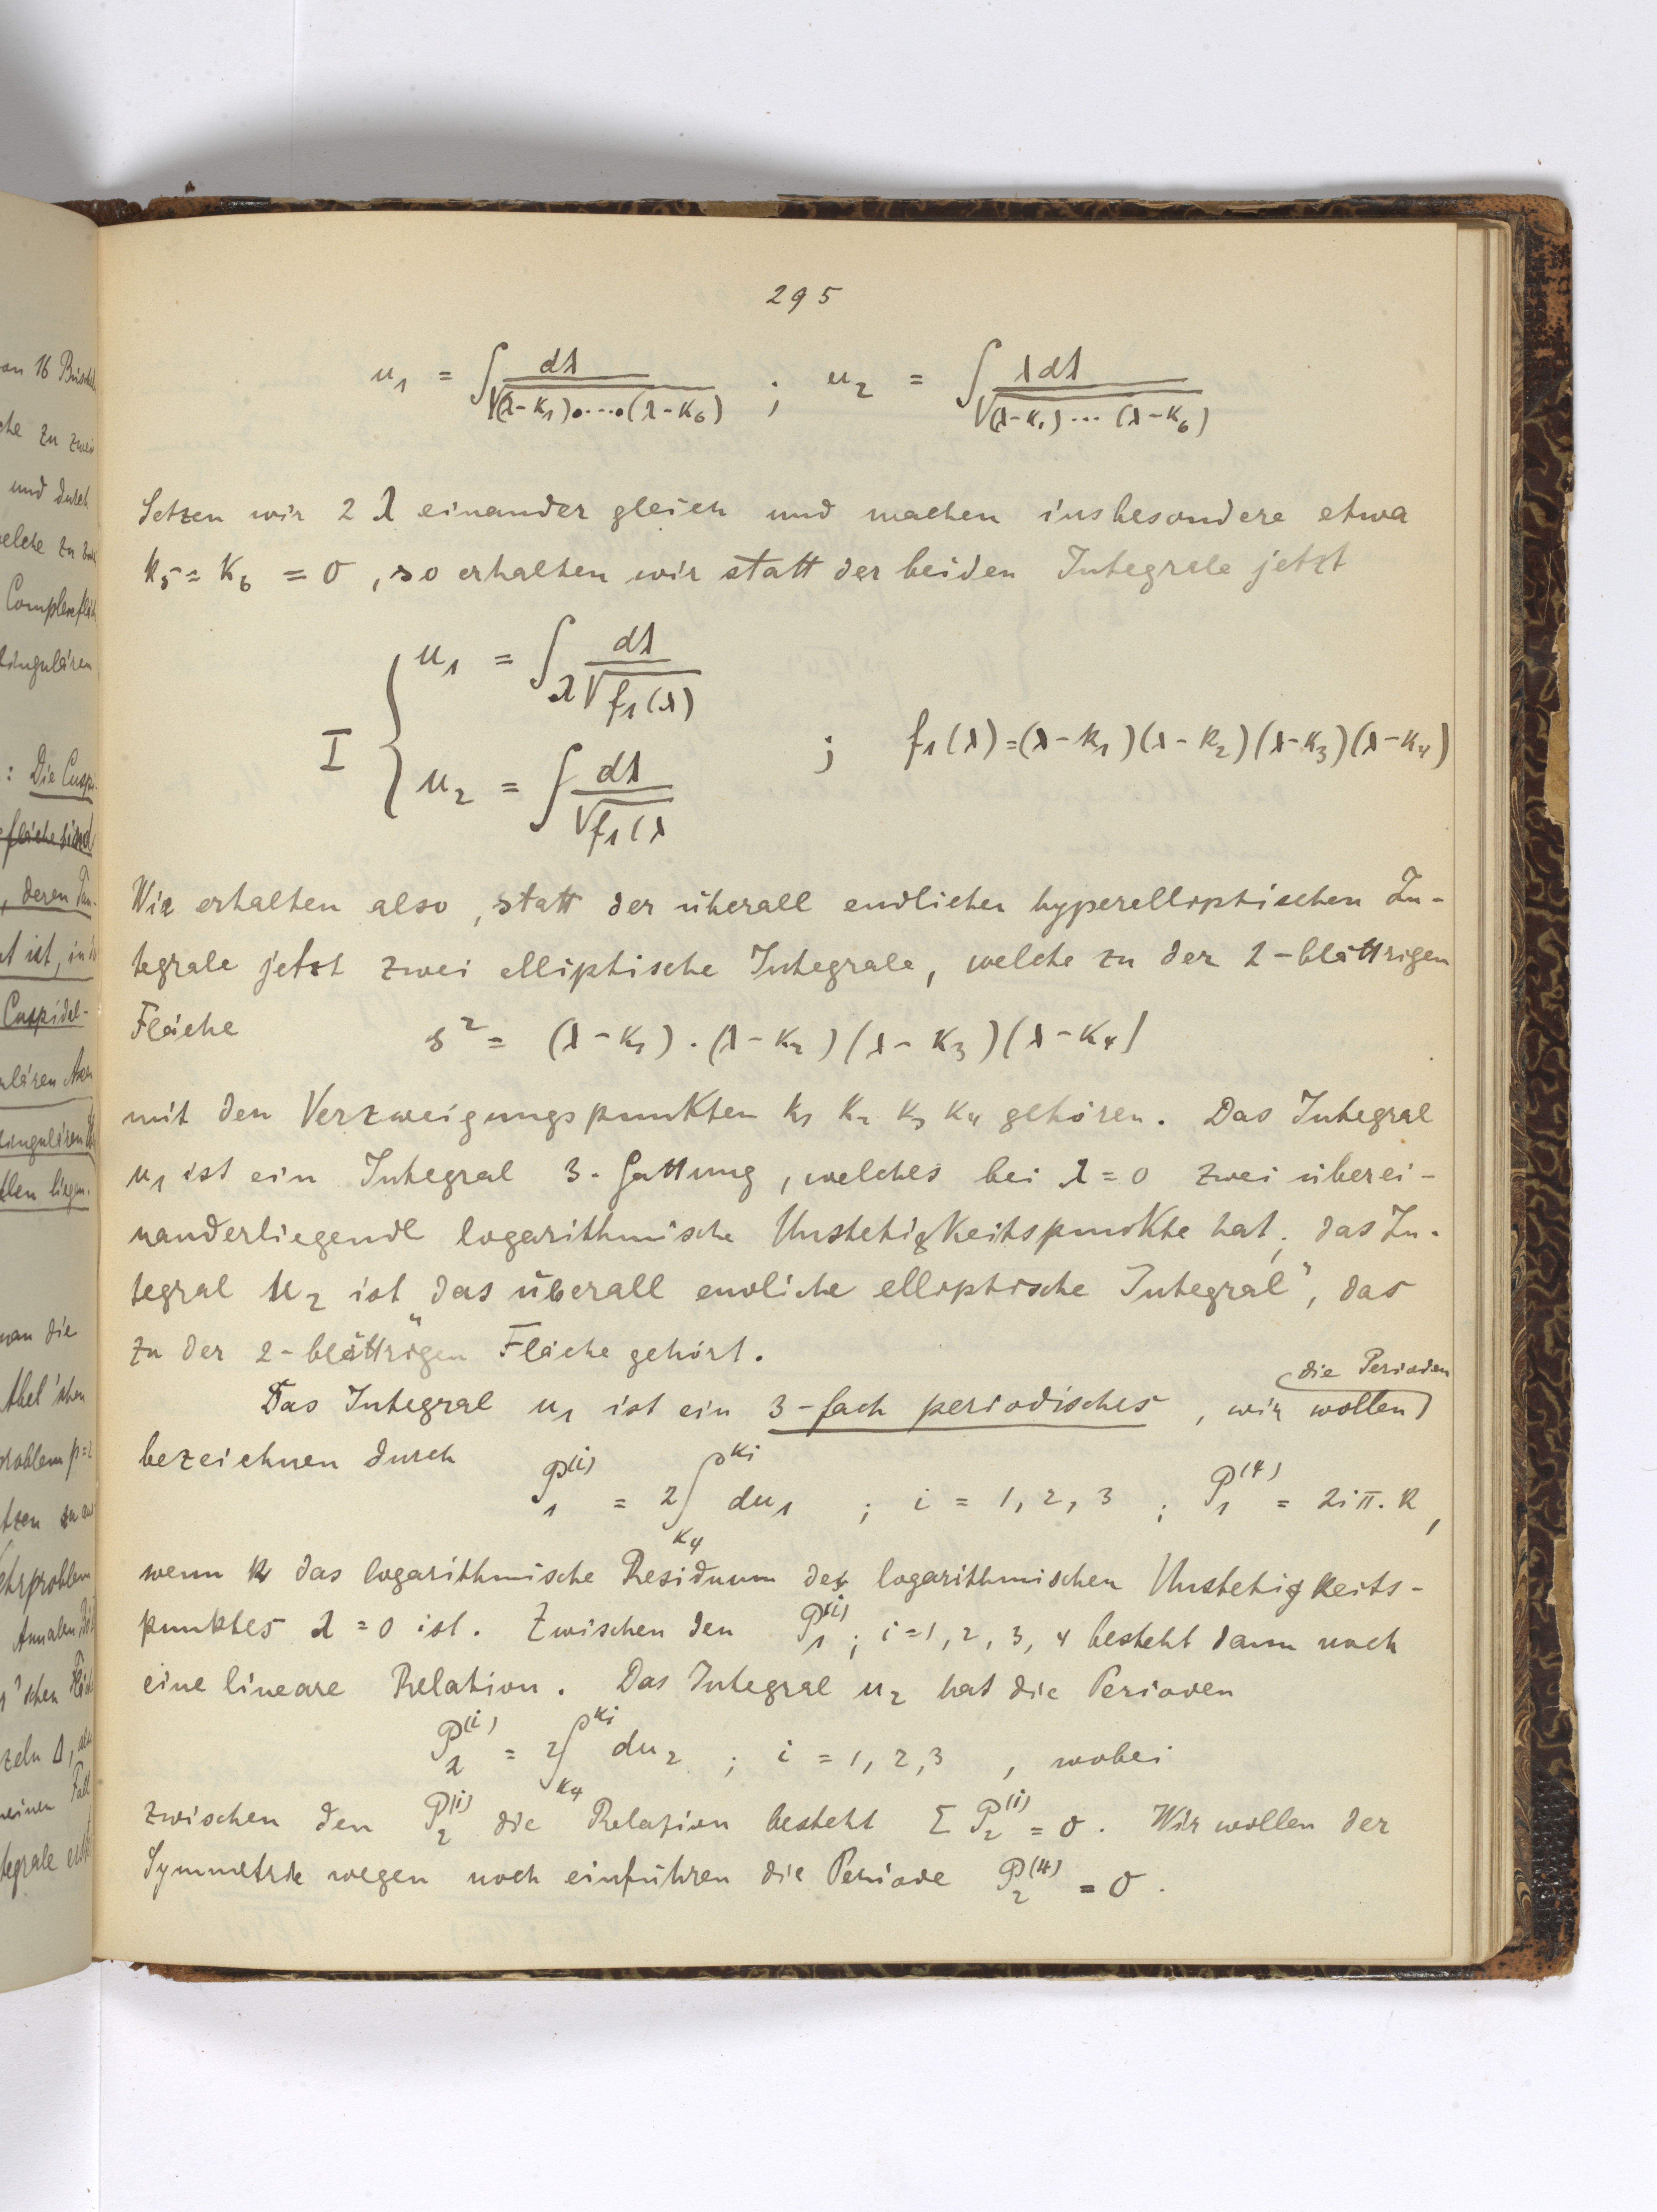 295
u₁ = ∫ dλ / √(λ-k₁)·…·(λ-k₆) ; u₂ = ∫ λdλ / √(λ-k₁)…(λ-k₆)
Setzen wir 2 λ einander gleich und machen insbesondere etwa
k₅ = k₆ = 0, so erhalten wir statt der beiden Integrale jetzt
I { u₁ = ∫ dλ / λ√f₁(λ)
u₂ = ∫ dλ / √f₁(λ ; f₁(λ) = (λ-k₁)(λ-k₂)(λ-k₃)(λ-k₄)
Wir erhalten also, statt der überall endlichen hyperelliptischen In-
tegrale jetzt zwei elliptische Integrale, welche zu der 2-blättrigen
Fläche s² = (λ-k₁)·(λ-k₂)(λ-k₃)(λ-k₄)
mit den Verzweigungspunkten k₁ k₂ k₃ k₄ gehören. Das Integral
u₁ ist ein Integral 3. Gattung, welches bei λ=0 zwei überei-
nanderliegende logarithmische Unstetigkeitspunkte hat; das In-
tegral u₂ ist „das überall endliche elliptische Integral", das
zu der 2-blättrigen Fläche gehört.
Das Integral u₁ ist ein 3-fach periodisches, wir wollen die Perioden
bezeichnen durch
P₁⁽ⁱ⁾ = 2∫_{k₄}^{kᵢ} du₁ ; i = 1, 2, 3 ; P₁⁽⁴⁾ = 2iπ.R,
wenn R das logarithmische Residuum des logarithmischen Unstetigkeits-
punktes λ=0 ist. Zwischen den P₁⁽ⁱ⁾; i=1, 2, 3, 4 besteht dann noch
eine lineare Relation. Das Integral u₂ hat die Perioden
P₂⁽ⁱ⁾ = 2∫_{k₄}^{kᵢ} du₂ ; i = 1, 2, 3 , wobei
zwischen den P₂⁽ⁱ⁾ die Relation besteht Σ P₂⁽ⁱ⁾ = 0. Wir wollen der
Symmetrie wegen noch einführen die Periode P₂⁽⁴⁾ = 0.